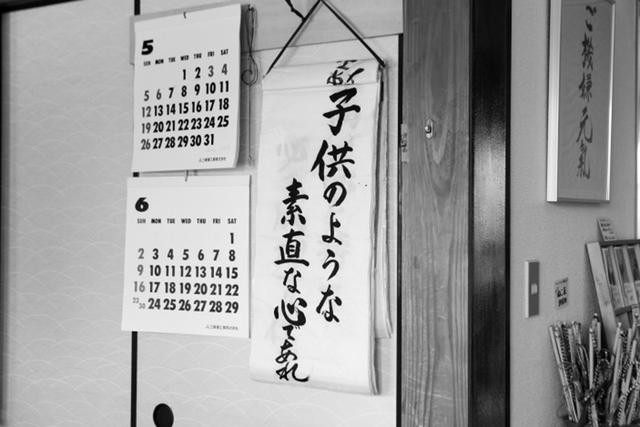 5
SUN MON TUE WED THU FRI SAT
1 2 3 4
5 6 7 8 9 10 11
12 13 14 15 16 17 18
19 20 21 22 23 24 25
26 27 28 29 30 31
6
SUN MON TUE WED THU FRI SAT
1
2 3 4 5 6 7 8
9 10 11 12 13 14 15
16 17 18 19 20 21 22
23/30 24 25 26 27 28 29
子供のような
素直な心であれ
ご機嫌元氣